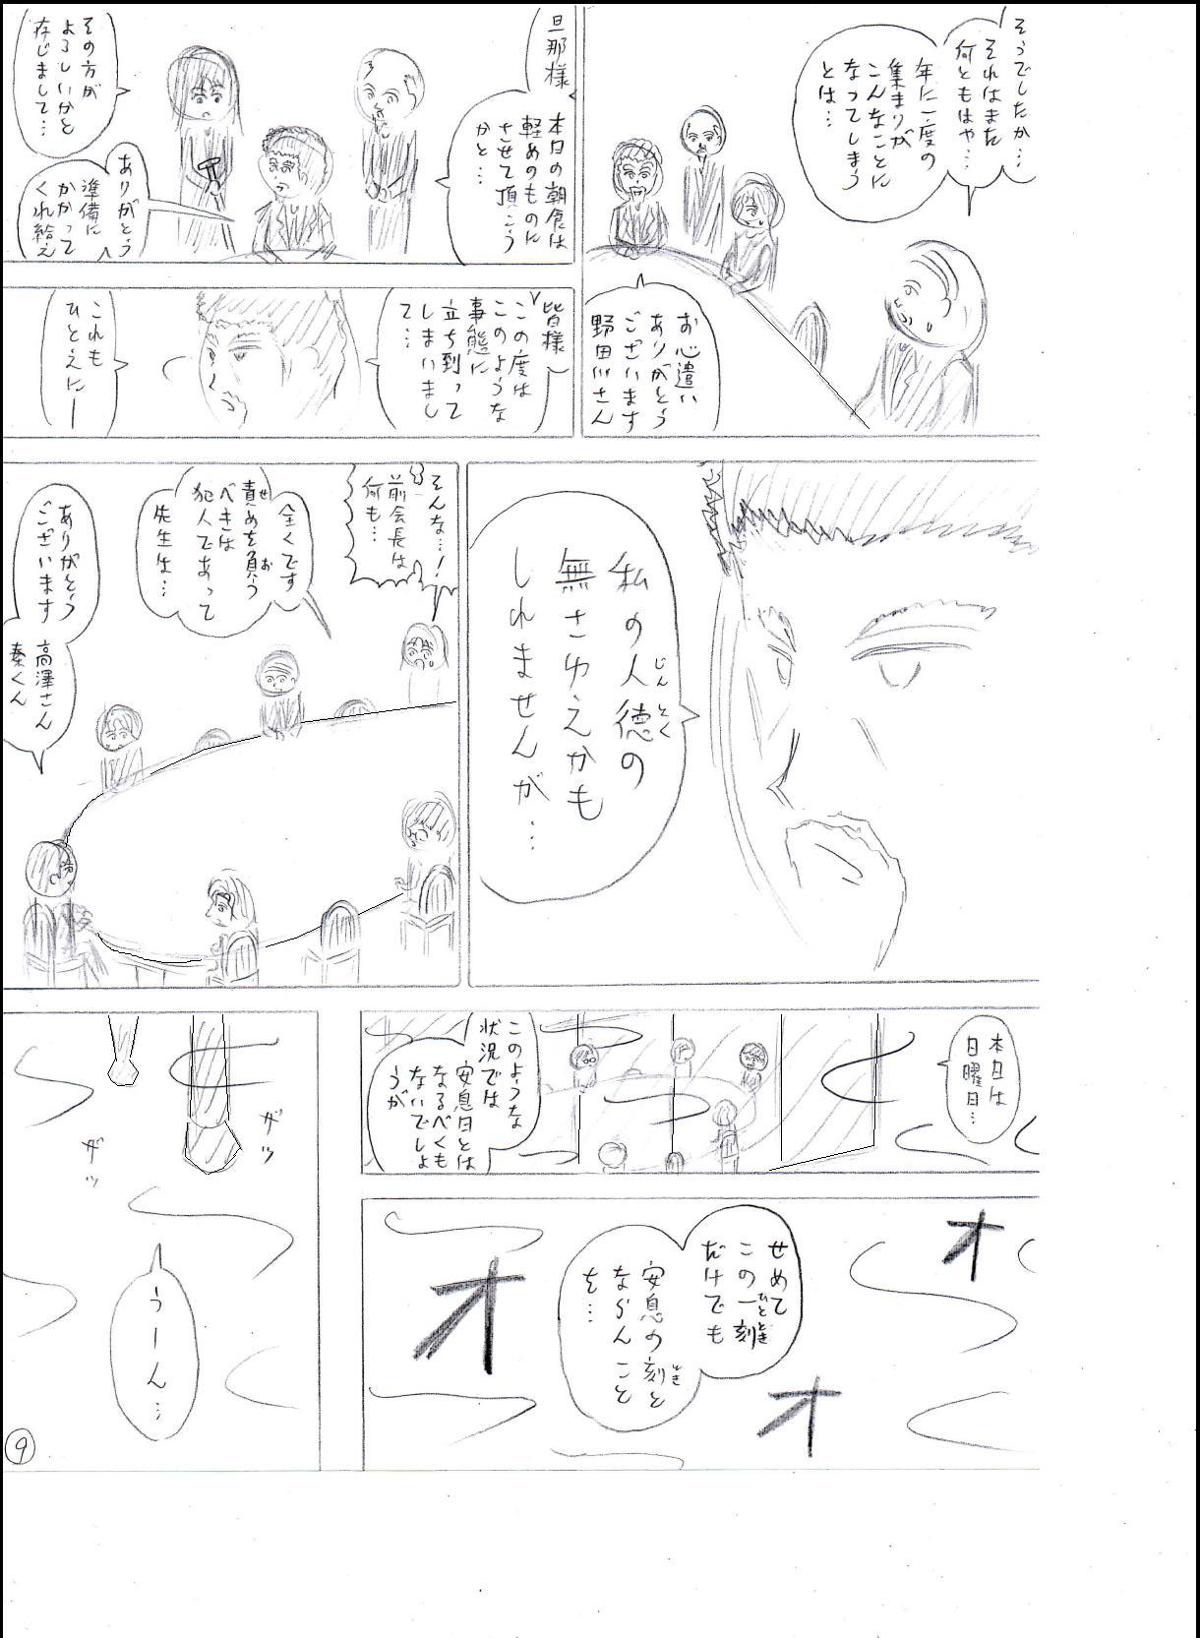 そうでしたか…
それはまた
何ともはや…
年に一度の
集まりが
こんなことに
なってしまう
とは…
お心遣い
ありがとう
ございます
野田川さん
旦那様
本日の朝食は
軽めのものに
させて頂こう
かと…
その方が
よろしいかと
存じまして…
ありがとう
準備に
かかって
くれ給え
皆様
この度は
このような
事態に
立ち到って
しまいまし
て…
これも
ひとえに―
私の人徳の
じんとく
無さゆえかも
しれませんが…
そんな…!
前会長は
何も…
全くです
責めを負う
せ
お
べきは
犯人であって
先生は…
ありがとう
ございます
高澤さん
秦くん
本日は
日曜日…
このような
状況では
安息日とは
なるべくも
ないでしょ
うが
せめて
この一刻
ひととき
だけでも
安息の刻と
とき
ならんこと
を…
オ
オ
オ
ガッ
ザッ
うーん…
9